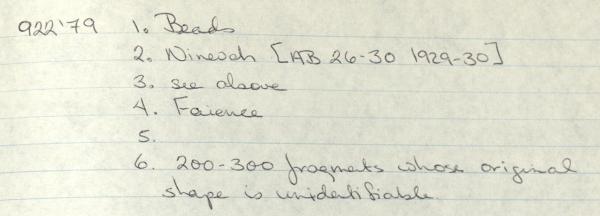 922'79 1. Beads
2. Nineveh [AB 26-30 1929-30]
3. see above
4. Faience
5.
6. 200-300 fragments whose original
shape is unidentifiable.